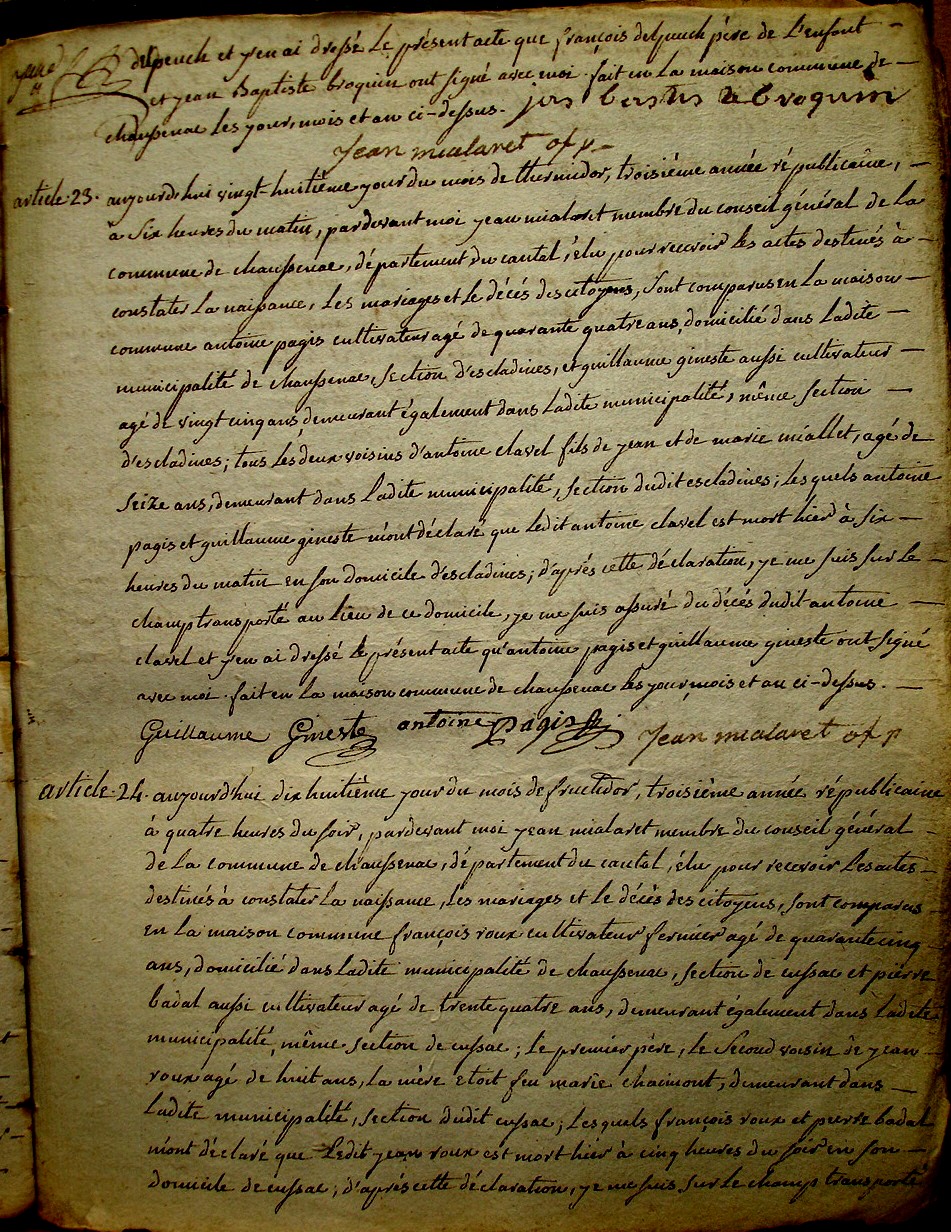 delpeuch et j'en ai dressé le présent acte que françois delpeuch père de L'enfent —
et jean Baptiste broquin ont signé avec moi. fait en La maison commune de —
chaussenac les jour, mois et an ci-dessus. broquin
Jean mialaret of p
article 23. aujourd'hui vingt-huitième jour du mois de thermidor, troisième année républicaine, —
à six heures du matin, pardevant moi jean mialaret membre du conseil général de la
commune de chaussenac, département du cantal, élu pour recevoir les actes destinés à —
constater La naissance, Les mariages et le décés des citoyens, sont comparus en La maison —
commune antoine pagis cultivateur agé de quarante quatre ans, domicilié dans Ladite —
municipalité de chaussenac, section d'escladines, et guillaume gineste aussi cultivateur —
agé de vingt cinq ans, demeurant également dans Ladite municipalité, même section —
d'escladines; tous les deux voisins d'antoine clavel fils de jean et de marie miallet, agé de
seize ans, demeurant dans Ladite municipalité, section dudit escladines; les quels antoine
pagis et guillaume gineste m'ont déclaré que Ledit antoine clavel est mort hier à six —
heures du matin en son domicile d'escladines; d'après cette déclaration, je me suis sur Le —
champ transporté au lieu de ce domicile, je me suis assuré du décés dudit antoine —
clavel et j'en ai dressé le présent acte qu'antoine pagis et guillaume gineste ont signé
avec moi. fait en La maison commune de chaussenac les jour, mois et an ci-dessus. —
Guillaume Gineste antoine pagis Jean mialaret of p
article 24. aujourd'hui dix huitième jour du mois de fructidor, troisième année républicaine
à quatre heures du soir, pardevant moi jean mialaret membre du conseil général —
de La commune de chaussenac, département du cantal, élu pour recevoir Les actes —
destinés à constater La naissance, Les mariages et Le décés des citoyens, sont comparus —
en La maison commune françois roux cultivateur fermier agé de quarante cinq —
ans, domicilié dans Ladite municipalité de chaussenac, section de cussac et pierre
badal aussi cultivateur agé de trente quatre ans, demeurant également dans Ladite
municipalité, même section de cussac; Le premier père, Le second voisin de jean —
roux agé de huit ans, La mère etoit feu marie chaimont, demeurant dans —
Ladite municipalité, section dudit cussac; Les quels françois roux et pierre badal
m'ont déclaré que Ledit jean roux est mort hier à cinq heures du soir en son —
domicile de cussac; d'après cette déclaration, je me suis sur Le champ transporté